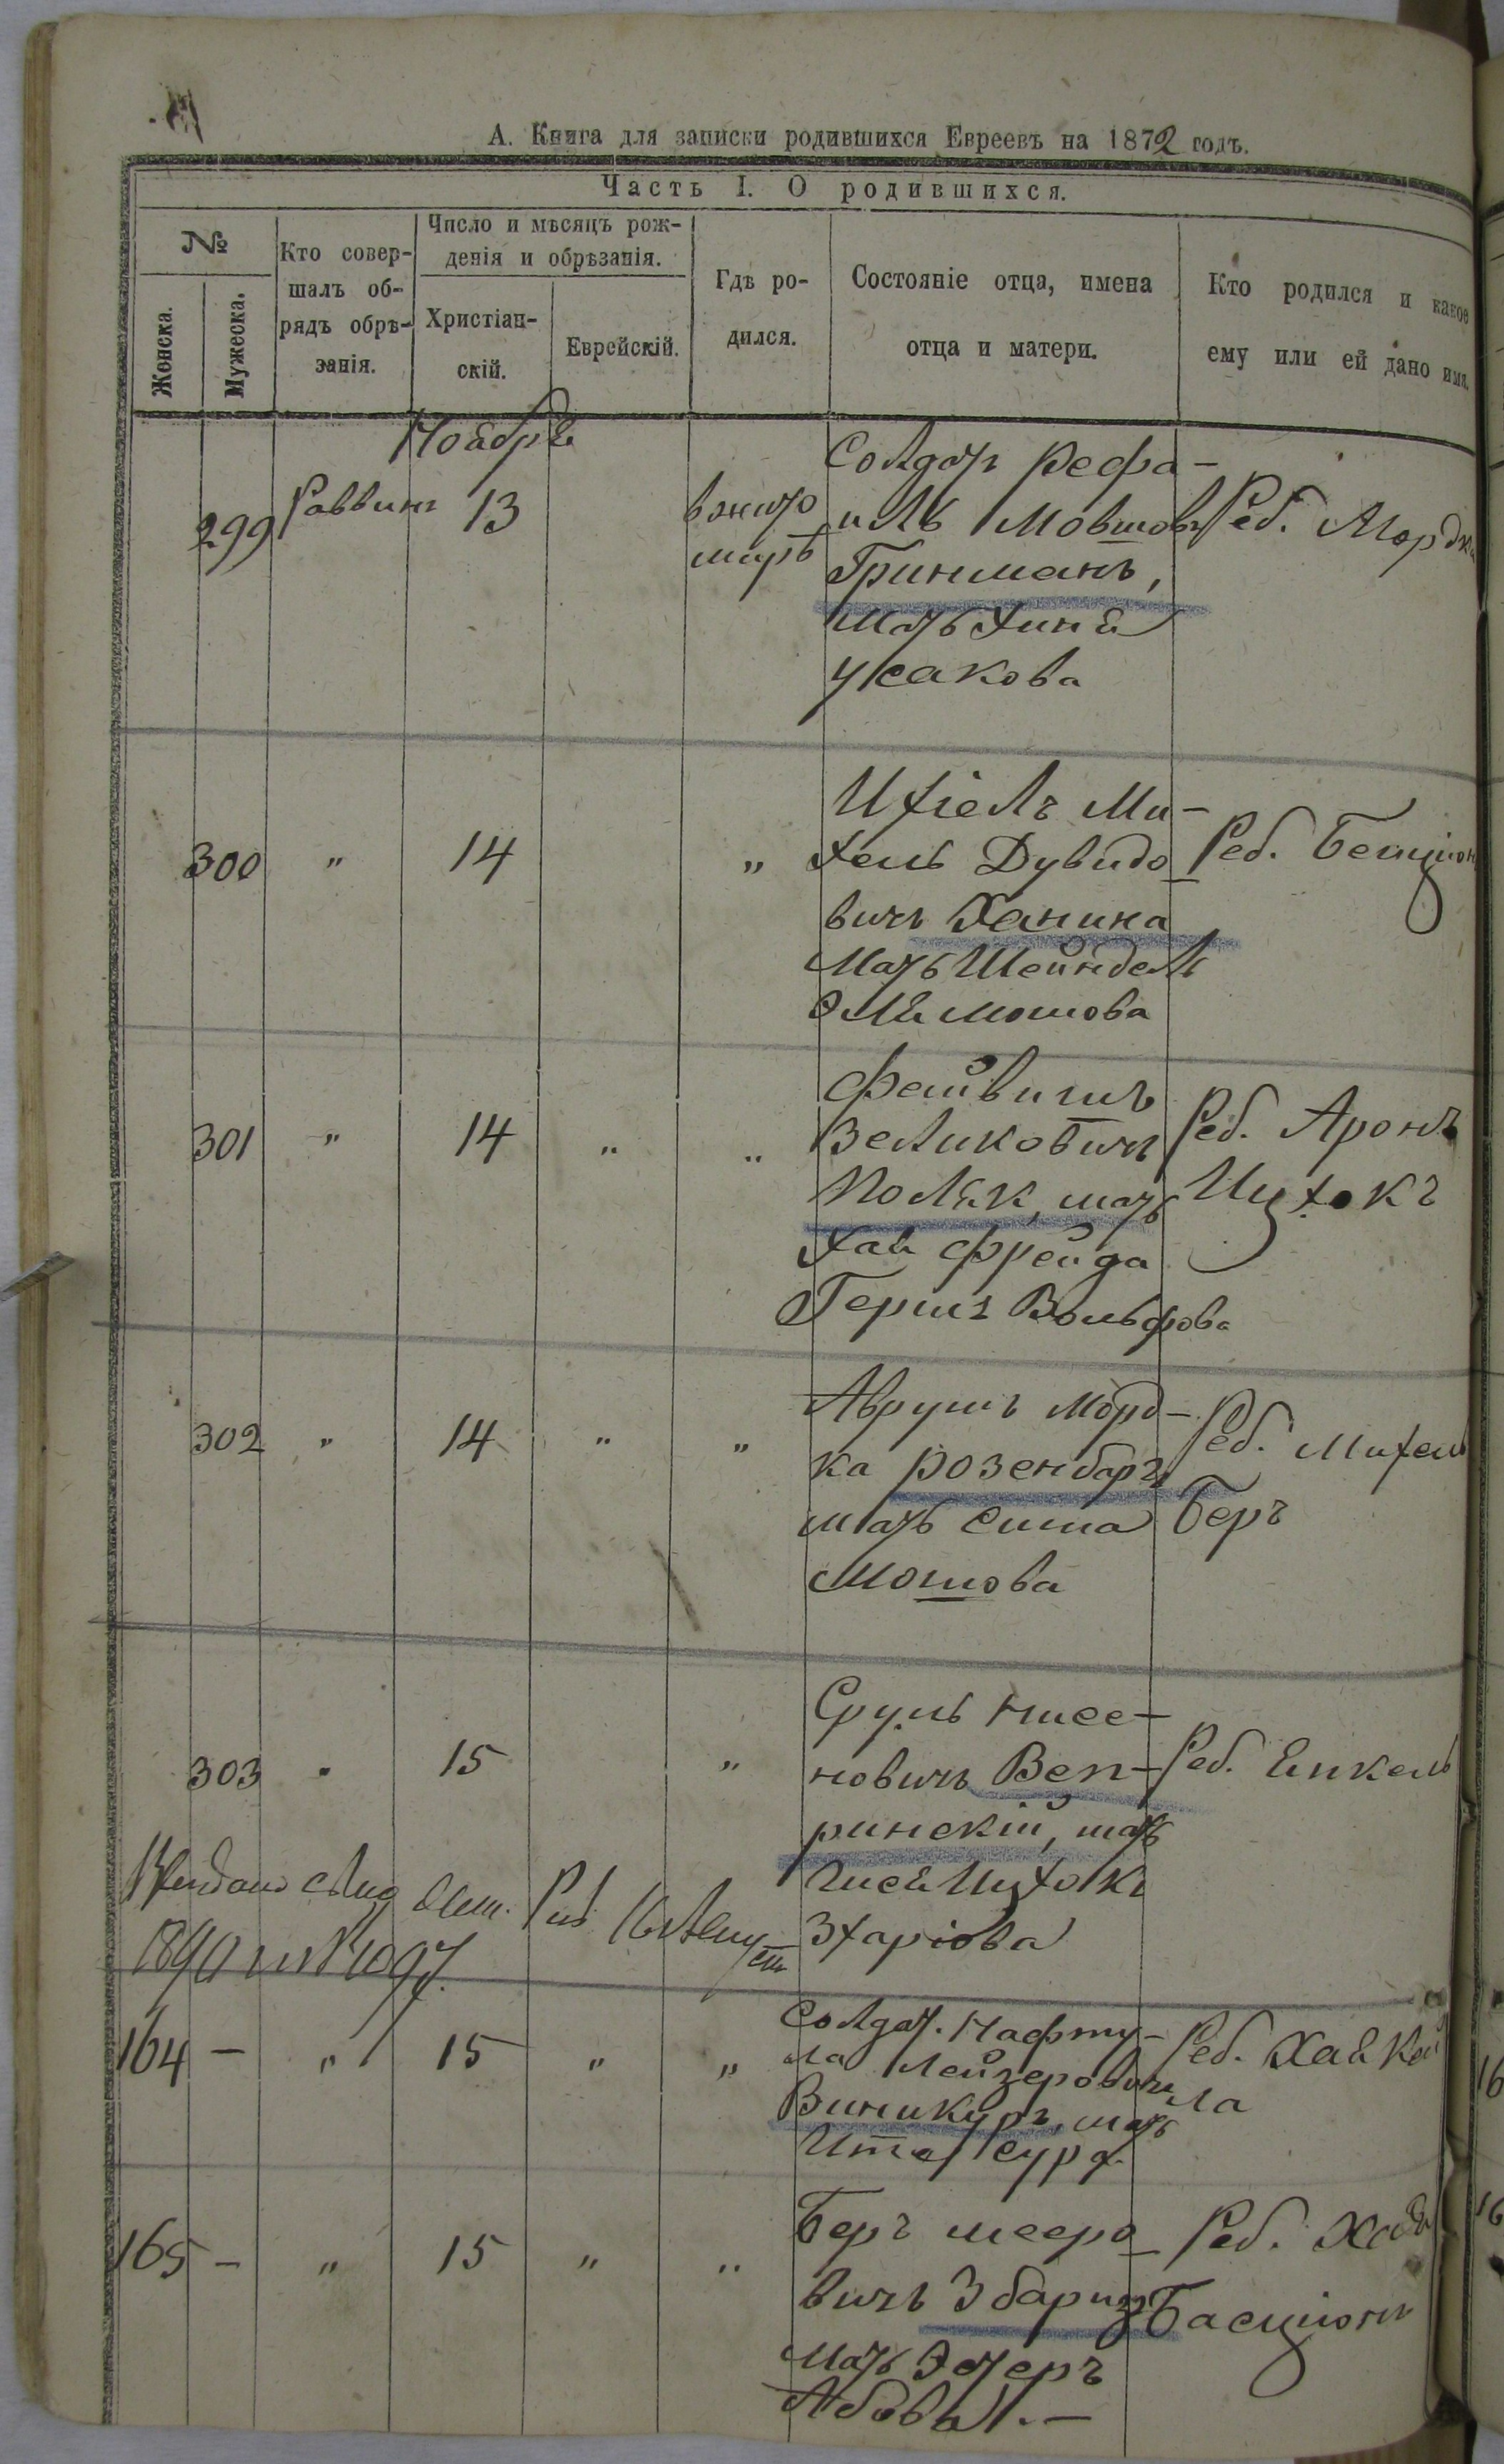 А. Книга для записки родившихся Евреевъ на 1872 годъ.
Часть I. О родившихся.
№
Женска.
Мужеска.
Кто совер-
шалъ об-
рядъ обрѣ-
занія.
Число и мѣсяцъ рож-
денія и обрѣзанія.
Христіан-
скій.
Еврейскій.
Гдѣ ро-
дился.
Состояніе отца, имена
отца и матери.
Кто родился и какое
ему или ей дано имя.
Ноября
299 Раввинъ 13
в жито
миръ
Солдатъ Рефа-
иль Мовшовъ
Гринманъ,
мать Хиня
Усакова
Реб. Мордко
300 " 14 "
Ихіелъ Ми-
хель Дувидо-
вичъ Ханина
Мать Шейндель
Эля Мошова
Реб. Бенціон
301 " 14 " "
Файвишъ
Великовичъ
Поляк, мать
Хая Фрейда
Гершъ Вольфова
Реб. Аронъ
Ицхокъ
302 " 14 " "
Аврумъ Морд-
ка Розенбаргъ
мать Сима
Мошова
Реб. Михель
Беръ
303 " 15 "
Сруль Нисе-
новичъ Веп-
ринскій, мать
Гися Ицхокъ
Зхаріова
Реб. Янкель
164 – " 15 " "
Солдат. Нафту-
ла Лейзеровичъ
Виникуръ, мать
Ита Сура
Реб. Хая Кей
ла
165 – " 15 " "
Беръ Мееро-
вичъ Збаризъ
Мать Эстеръ
Абова. –
Реб. Хая
Басціонъ